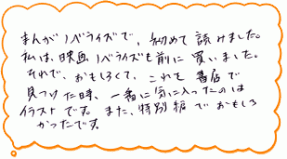 まんがノベライズで、初めて読けました。
私は、映画ノベライズも前に買いました。
それで、おもしろくて、これを書店で
見つけた時、一番に気に入ったのは
イラストです。また、特別編でおもしろ
かったです。